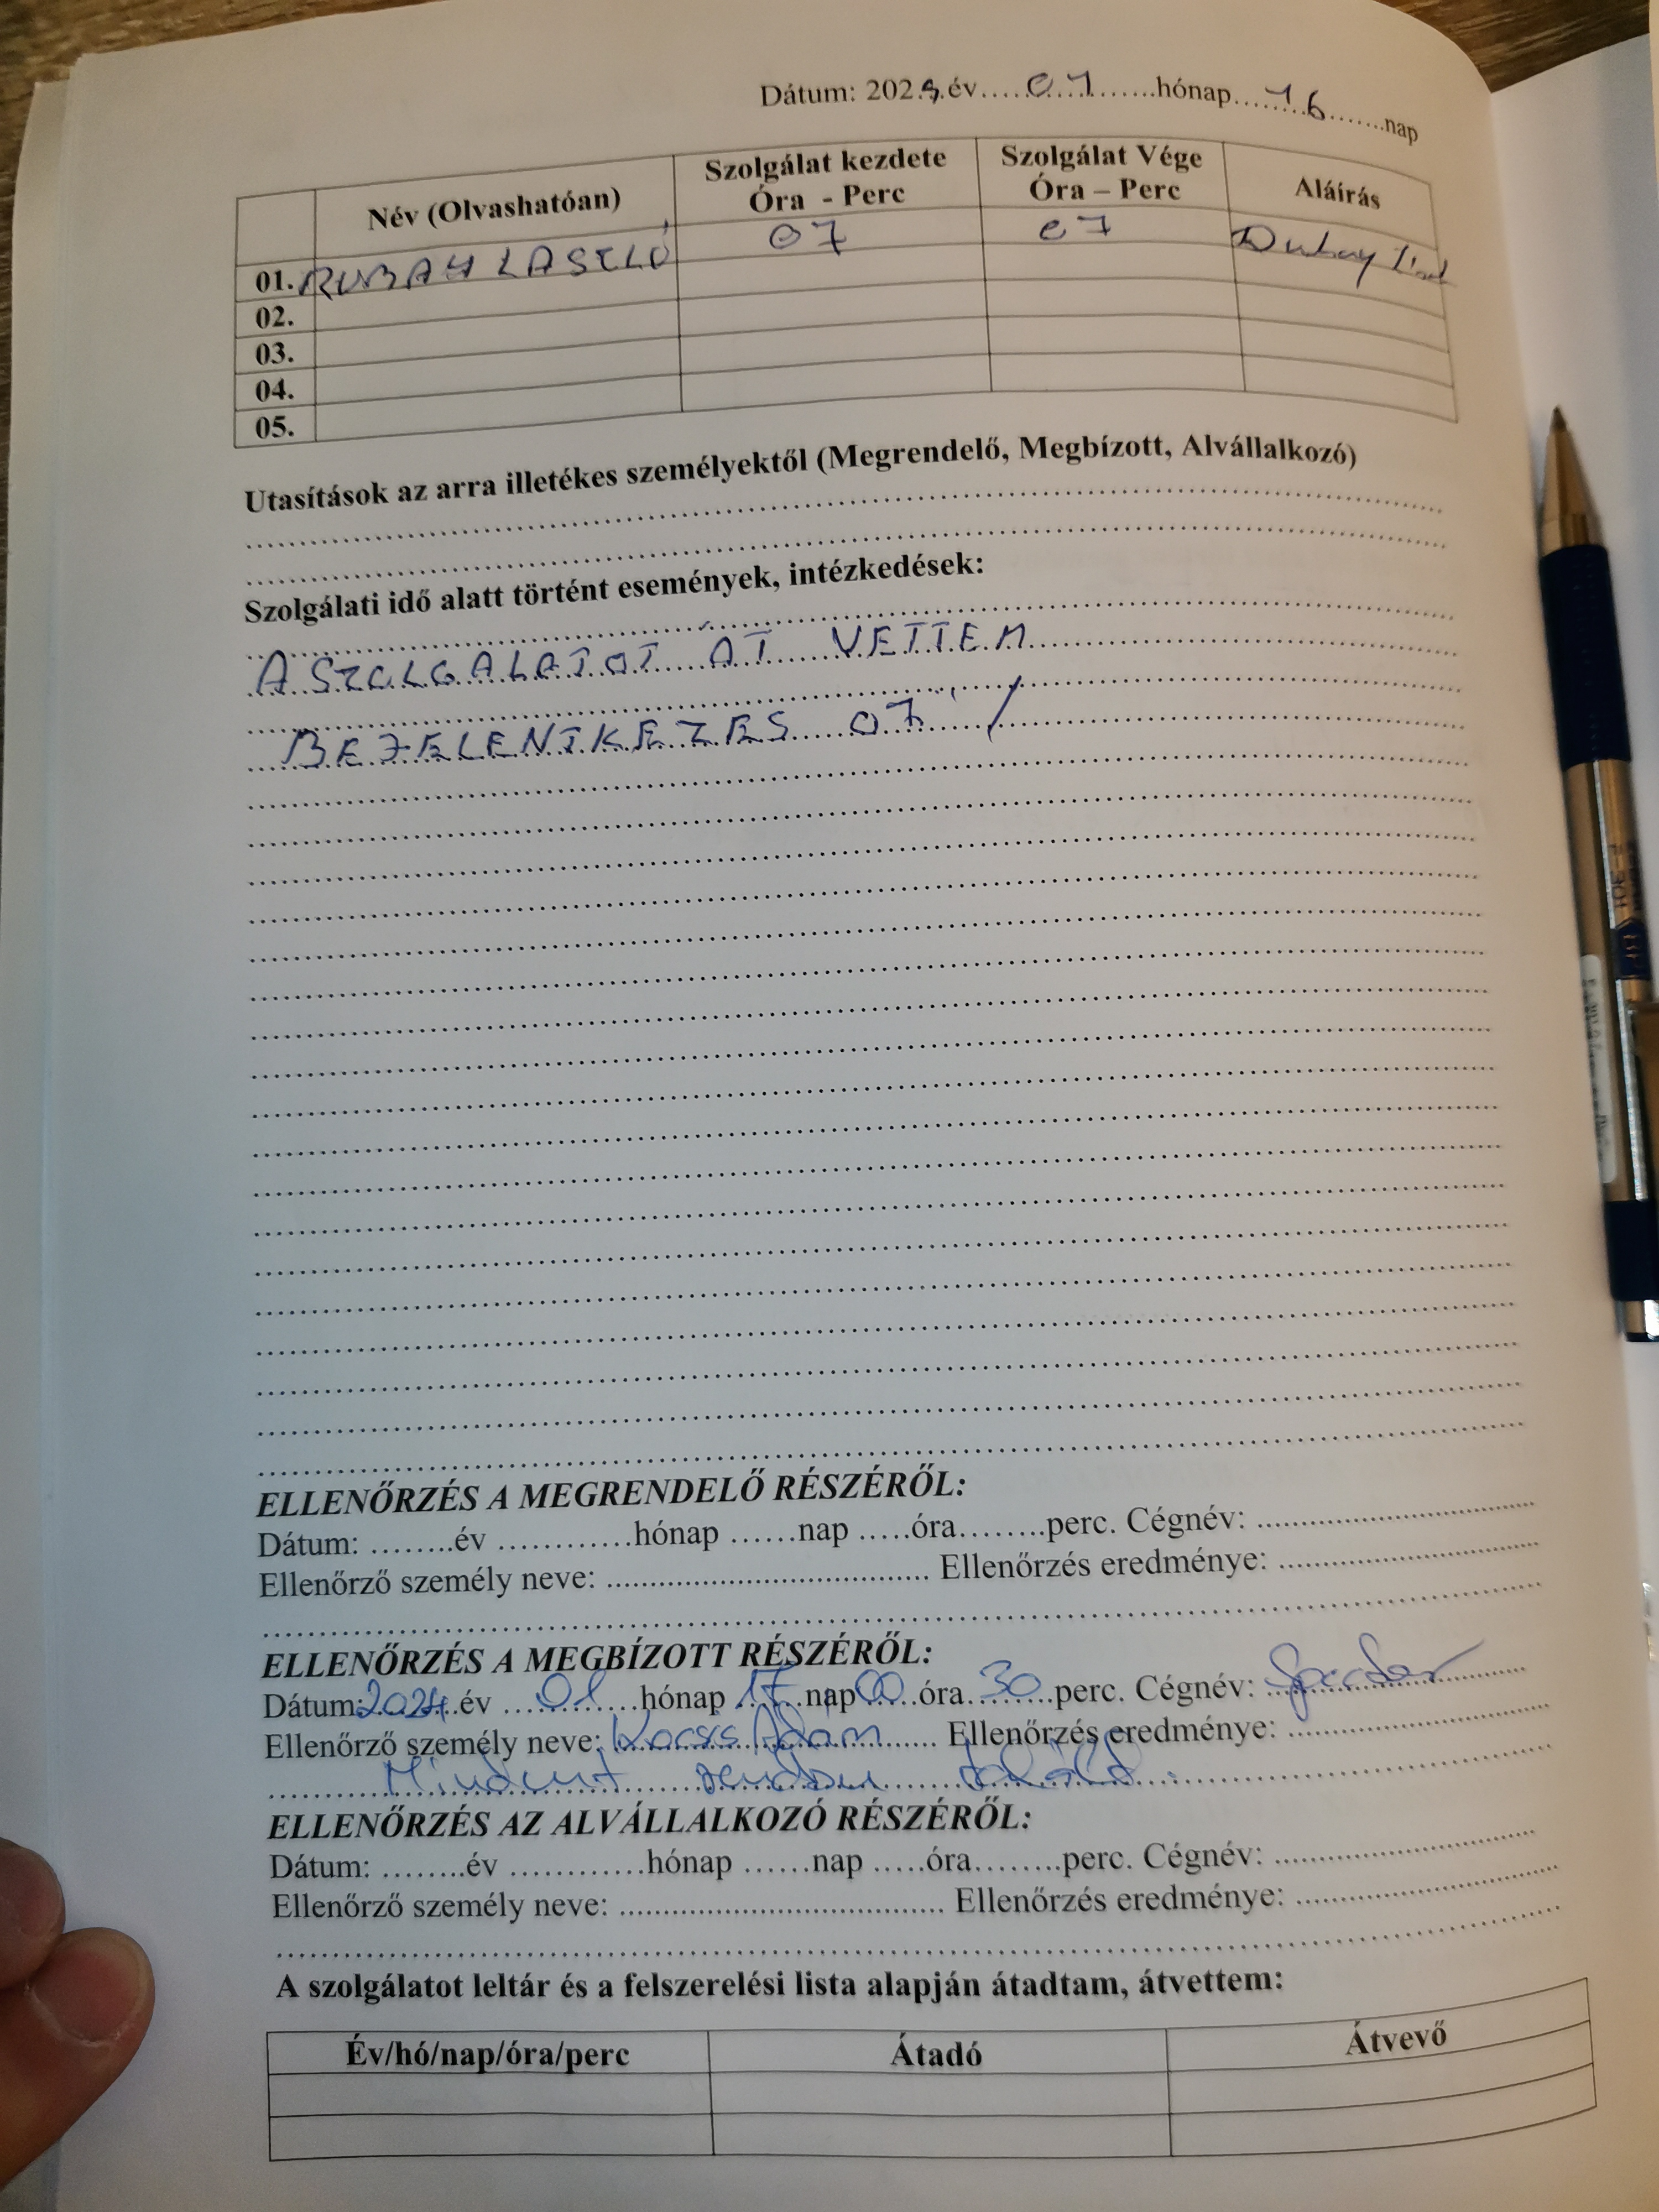 Dátum: 2024.év.....01.......hónap....16.......nap
Név (Olvashatóan) Szolgálat kezdete Óra - Perc Szolgálat Vége Óra – Perc Aláírás
01. LASZLÓ 07 07
02.
03.
04.
05.
Utasítások az arra illetékes személyektől (Megrendelő, Megbízott, Alvállalkozó)
Szolgálati idő alatt történt események, intézkedések:
A SZOLGALATOT ÁT VETTEM
BEJELENTKEZES 07
ELLENŐRZÉS A MEGRENDELŐ RÉSZÉRŐL:
Dátum: ........év ............hónap ......nap .....óra........perc. Cégnév: ..............................
Ellenőrző személy neve: .................................... Ellenőrzés eredménye: ..............................
ELLENŐRZÉS A MEGBÍZOTT RÉSZÉRŐL:
Dátum:2024.év ....01....hónap 17.nap00...óra.30..perc. Cégnév:
Ellenőrző személy neve: Kocsis Ádám....... Ellenőrzés eredménye: ..............................
Mindent rendben
ELLENŐRZÉS AZ ALVÁLLALKOZÓ RÉSZÉRŐL:
Dátum: ........év ............hónap ......nap .....óra........perc. Cégnév: ..............................
Ellenőrző személy neve: .................................... Ellenőrzés eredménye: ..............................
A szolgálatot leltár és a felszerelési lista alapján átadtam, átvettem:
Év/hó/nap/óra/perc Átadó Átvevő